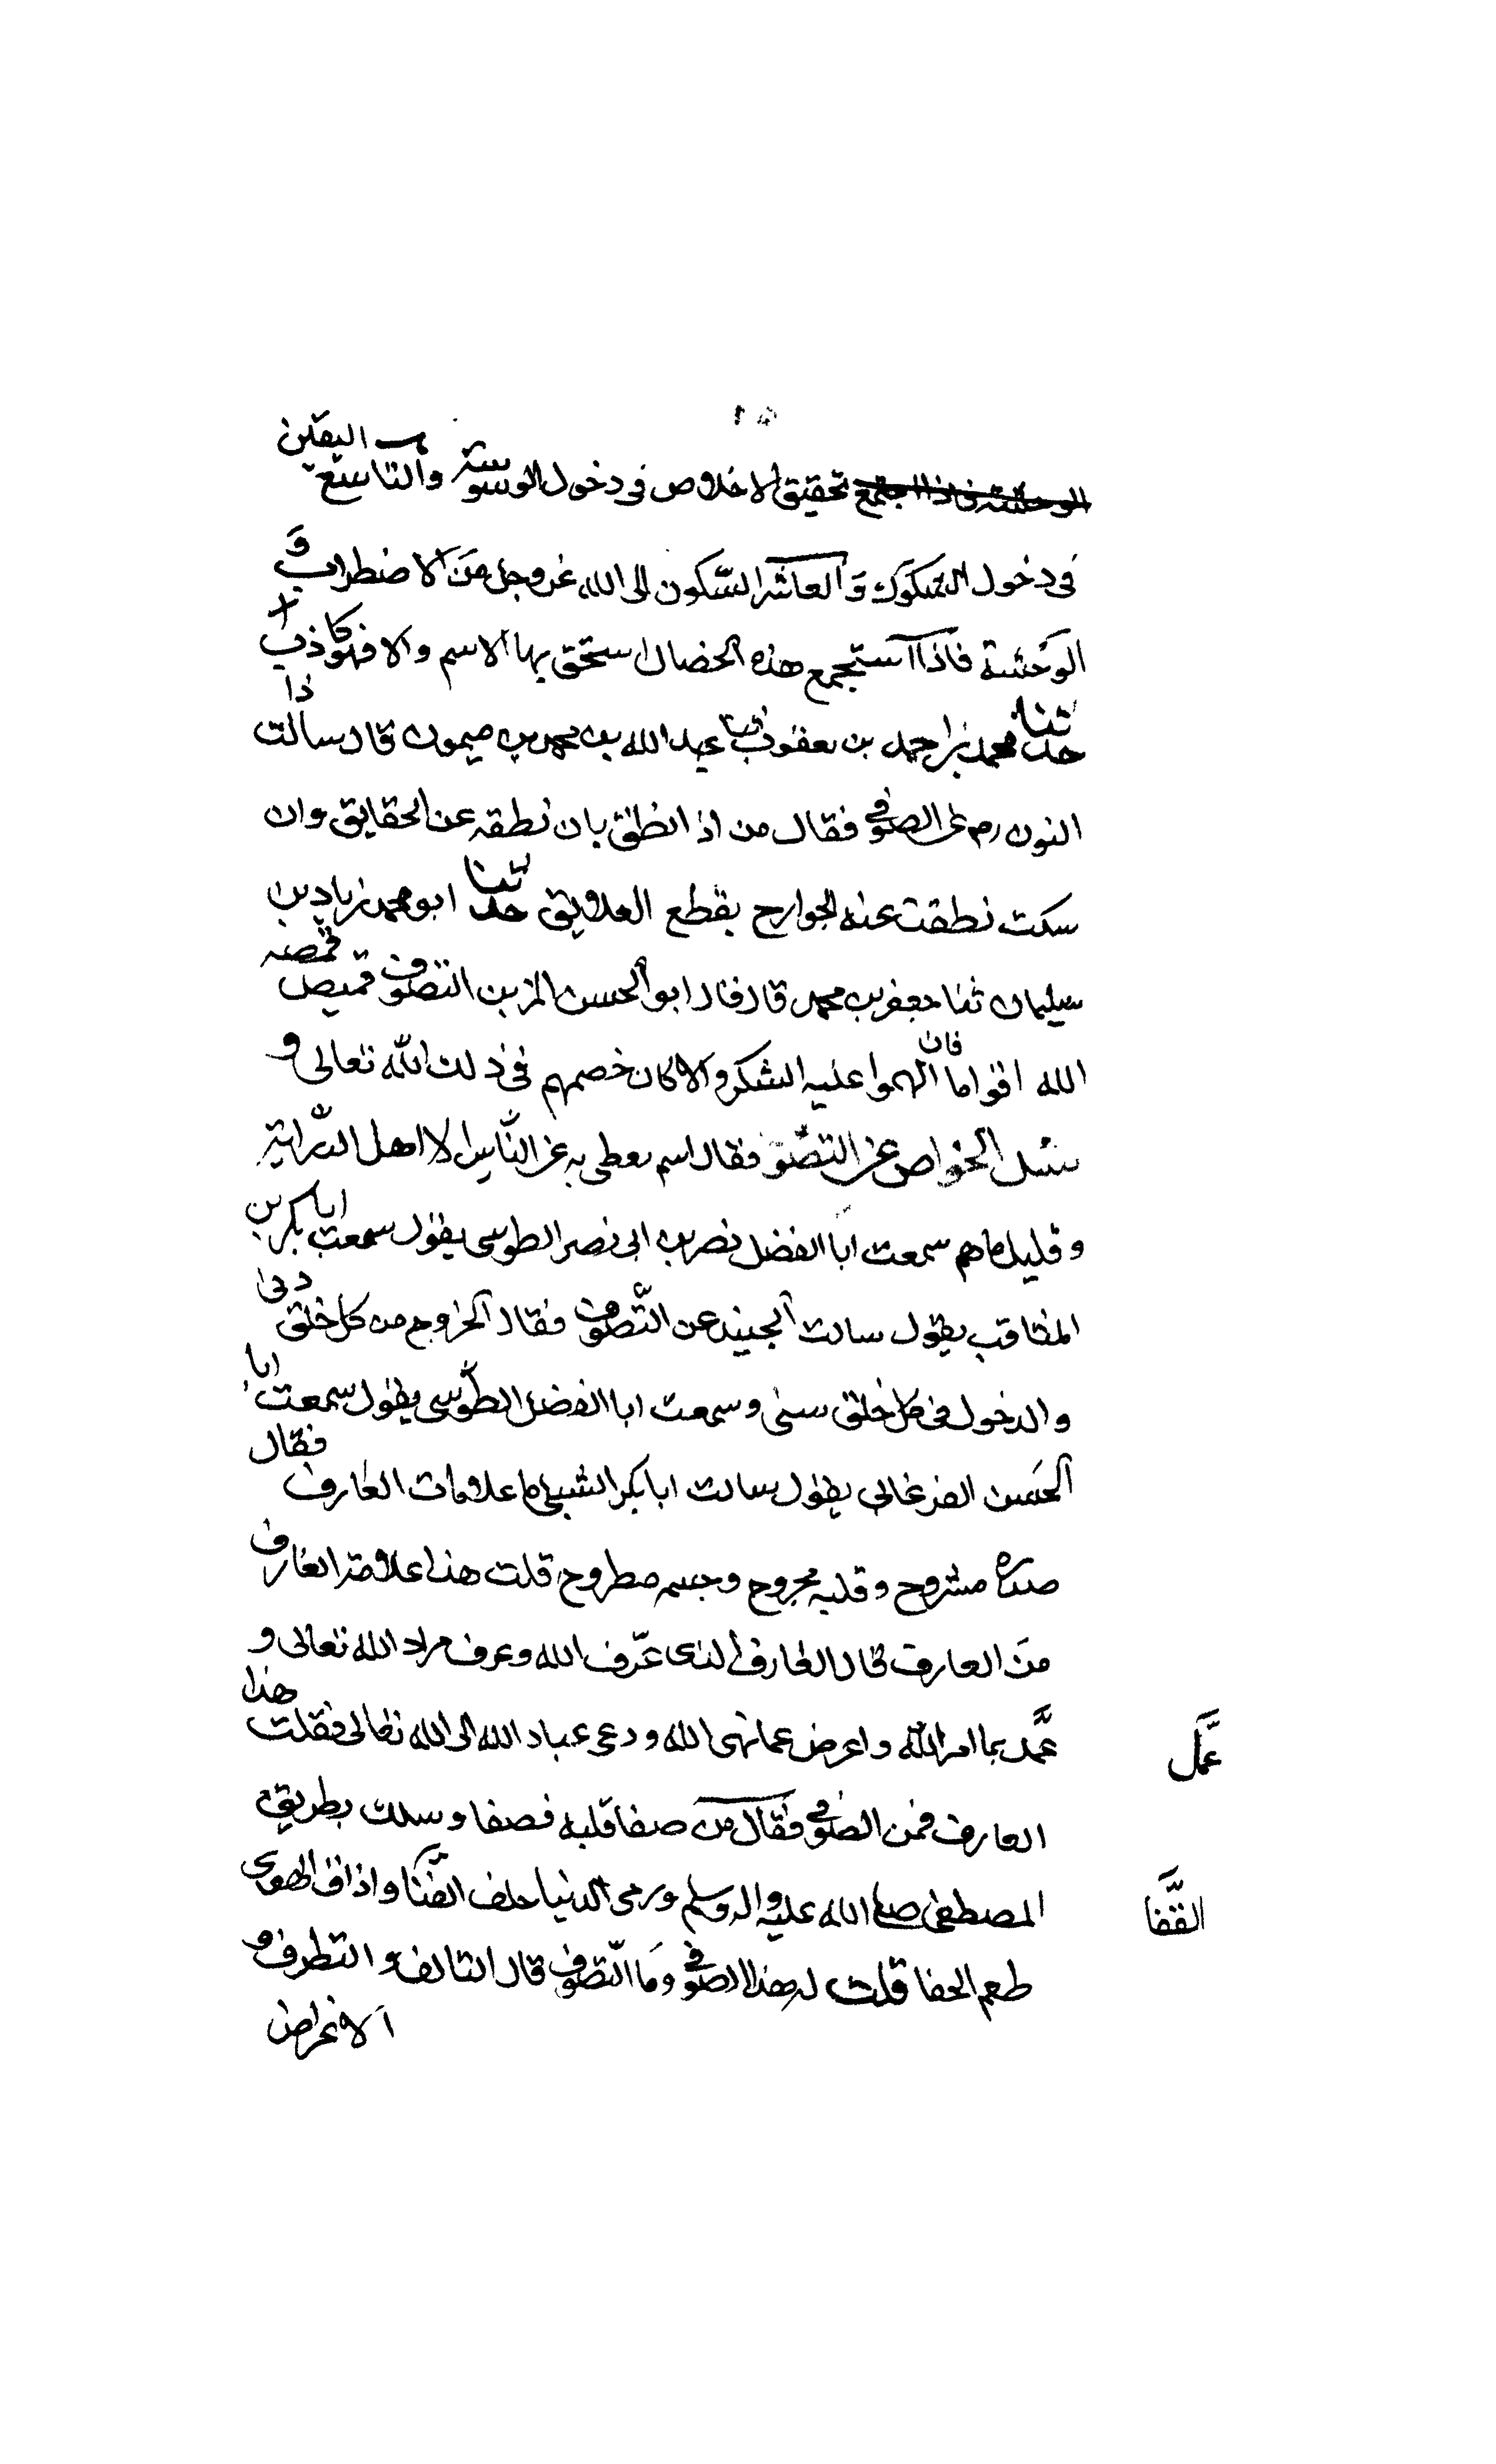 الوحشة فاذا اجتمع تحقيق الاخلاص فى دخول الوسوسة والتاسع اليقين
فى دخول الشكوك والعاشر السكون الى الله عز وجل من الاضطراب و
الوحشة فاذا استجمع هذه الخصال استحق بها الاسم والا فهو كاذب
حدثنا محمد بن احمد بن يعقوب ثنا عبد الله بن محمد بن ميمون قال سالت ذا
النون رح عن الصوفى فقال من اذا نطق بان نطقه عن الحقايق وان
سكت نطقت عنه الجوارح بقطع العلايق حدثنا ابو محمد زياد بن
سليمان ثنا جعفر بن محمد قال قال ابو الحسن المزين التصوف قميص قمصه
الله اقواما فان الهموا عليه الشكر والا كان خصمهم فى ذلك الله تعالى و
سئل الخواص عن التصوف فقال اسم يعطى به عن الناس الا اهل الدراية
وقليل ما هم سمعت ابا الفضل نصر بن ابى نصر الطوسى يقول سمعت ابا بكر بن
المثاقب يقول سالت الجنيد عن التصوف فقال الخروج من كل خلق دنى
والدخول فى كل خلق سنى وسمعت ابا الفضل الطوسى يقول سمعت ابا
الحسن الفرغانى يقول سالت ابا بكر الشبلى ما علامات العارف فقال
صدره مشروح وقلبه مجروح وجسمه مطروح قلت هذا علامة العارف
من العارف قال العارف الذى عرف الله وعرف مراد الله تعالى و
عمد بما امر الله واعرض عما نهى الله ودعى عباد الله الى الله تعالى فقلت هذا
عمل
العارف فمن الصوفى فقال من صفا قلبه فصفا وسلك بطريق
المصطفى صلى الله عليه واله وسلم ورمى الدنيا خلف القفا واذاق الهوى
القفا
طعم الجفا قلت له هذا الصوفى وما التصوف قال التالف والتطرف و
الاعراض